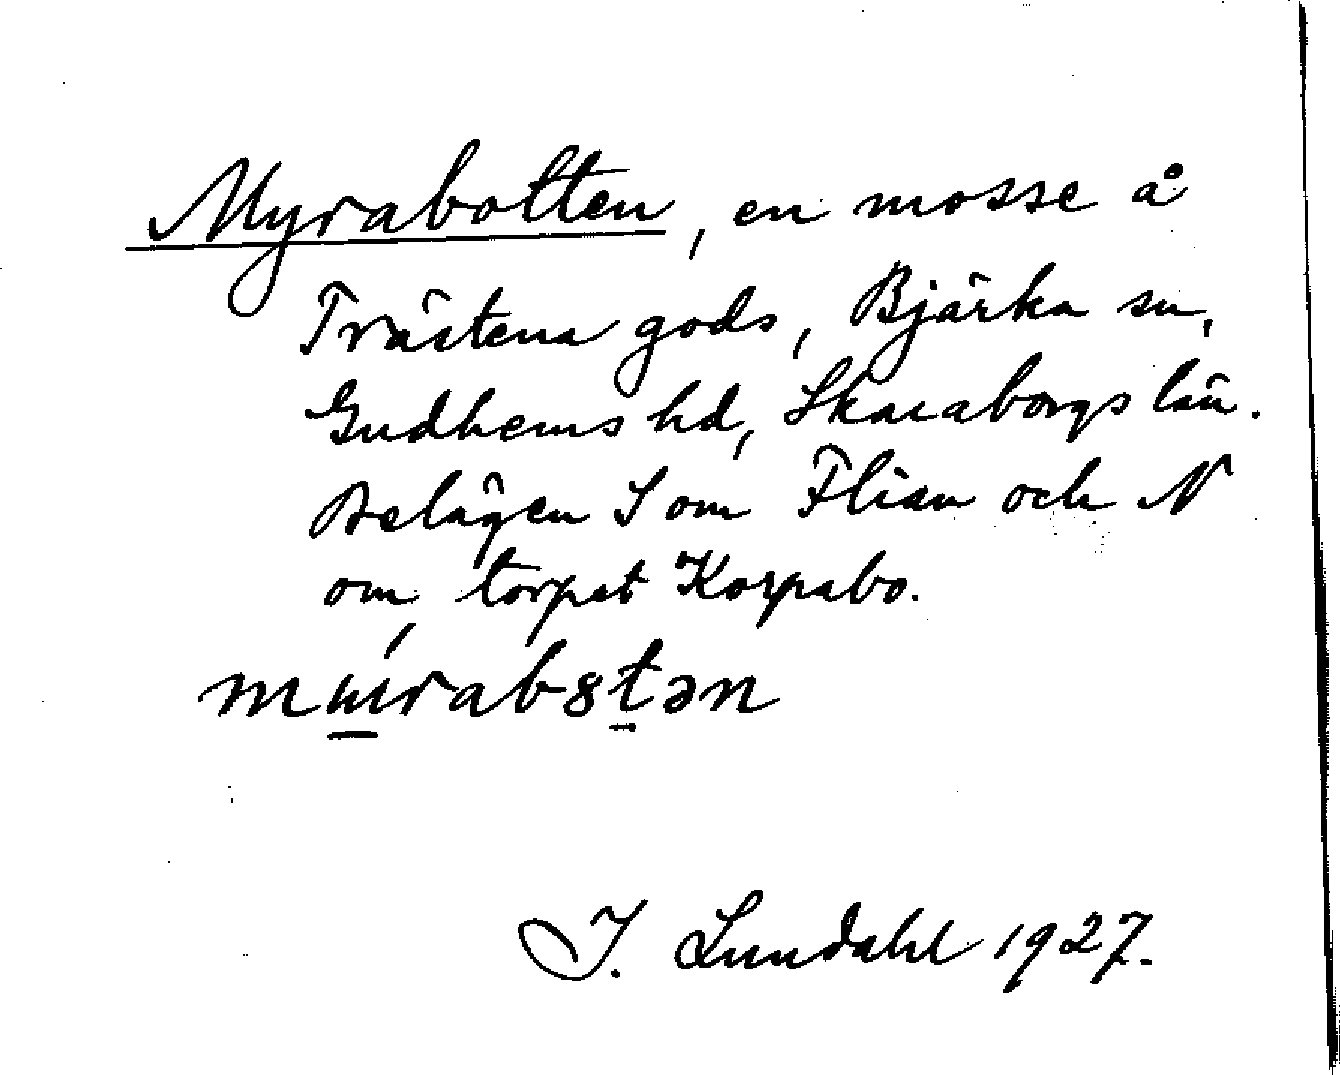 Myrabotten, en mosse å
Trästena gods, Bjärka sn,
Gudhems hd, Skaraborgs län.
Belägen S om Flian och N
om torpet Korpabo.
J. Lundahl 1927.